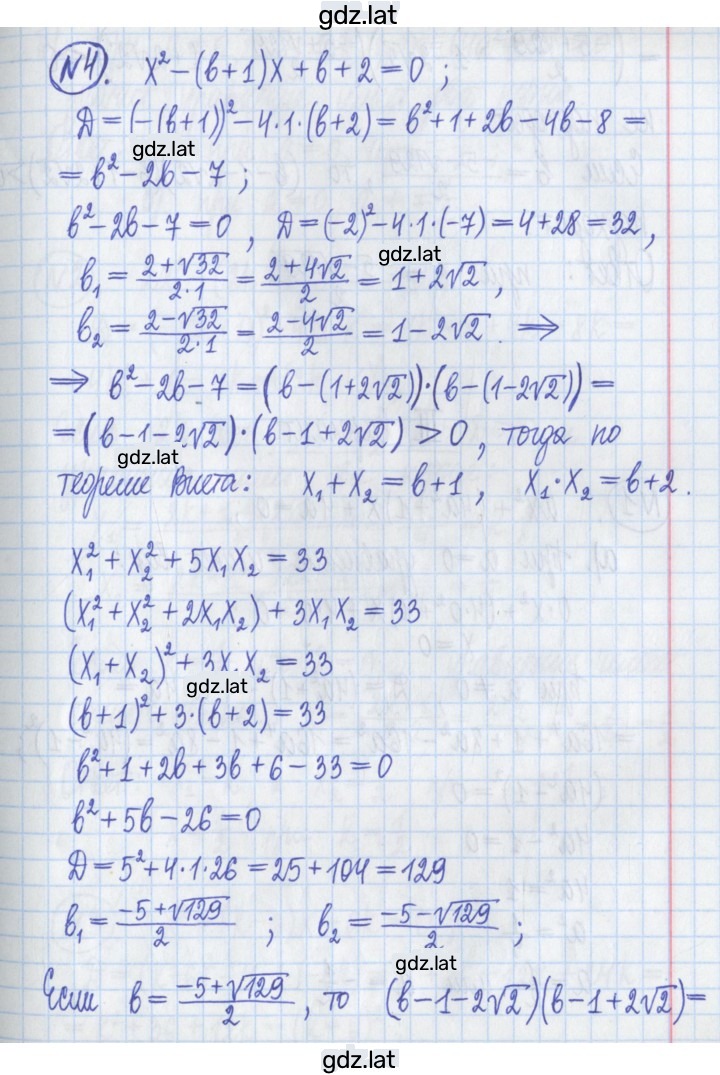 gdz.lat
№4. x² − (b+1)x + b + 2 = 0 ;
Д = (−(b+1))² − 4·1·(b+2) = b² + 1 + 2b − 4b − 8 =
gdz.lat
= b² − 2b − 7 ;
b² − 2b − 7 = 0 , Д = (−2)² − 4·1·(−7) = 4 + 28 = 32 ,
gdz.lat
b₁ = (2+√32)/(2·1) = (2+4√2)/2 = 1 + 2√2 ,
b₂ = (2−√32)/(2·1) = (2−4√2)/2 = 1 − 2√2 . ⇒
⇒ b² − 2b − 7 = (b − (1+2√2))·(b − (1−2√2)) =
= (b − 1 − 2√2)·(b − 1 + 2√2) > 0 , тогда по
gdz.lat
теореме Виета: x₁ + x₂ = b + 1 , x₁·x₂ = b + 2 .
x₁² + x₂² + 5x₁x₂ = 33
(x₁² + x₂² + 2x₁x₂) + 3x₁x₂ = 33
(x₁ + x₂)² + 3x₁x₂ = 33
gdz.lat
(b+1)² + 3·(b+2) = 33
b² + 1 + 2b + 3b + 6 − 33 = 0
b² + 5b − 26 = 0
Д = 5² + 4·1·26 = 25 + 104 = 129
b₁ = (−5+√129)/2 ; b₂ = (−5−√129)/2 ;
gdz.lat
Если b = (−5+√129)/2 , то (b−1−2√2)(b−1+2√2) =
gdz.lat